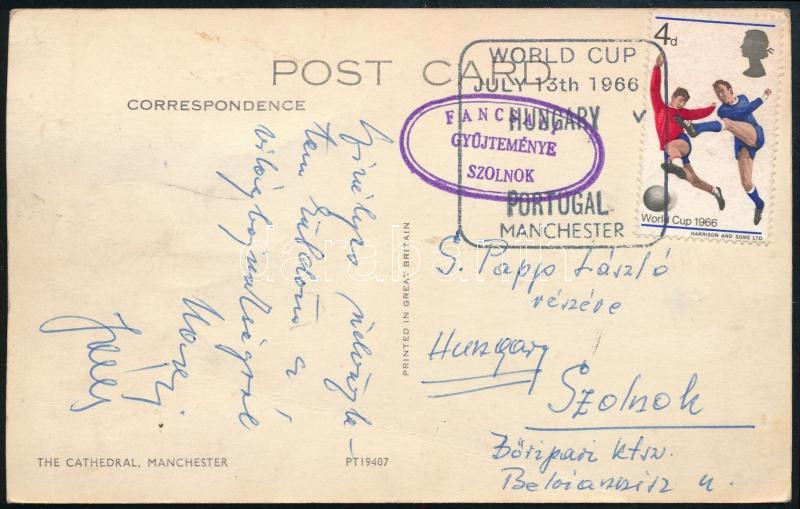 POST CARD
CORRESPONDENCE
WORLD CUP
JULY 13th 1966
HUNGARY v
PORTUGAL
MANCHESTER
4d
World Cup 1966
HARRISON AND SONS LTD
GYŰJTEMÉNYE
SZOLNOK
Szívélyes üdvözle-
tem küldöm a
világbajnokságról
PRINTED IN GREAT BRITAIN
S. Papp László
részére
Hungary
Szolnok
Bőripari Ktsz.
Beloiannisz u.
THE CATHEDRAL, MANCHESTER
PT19407
darabanth.com